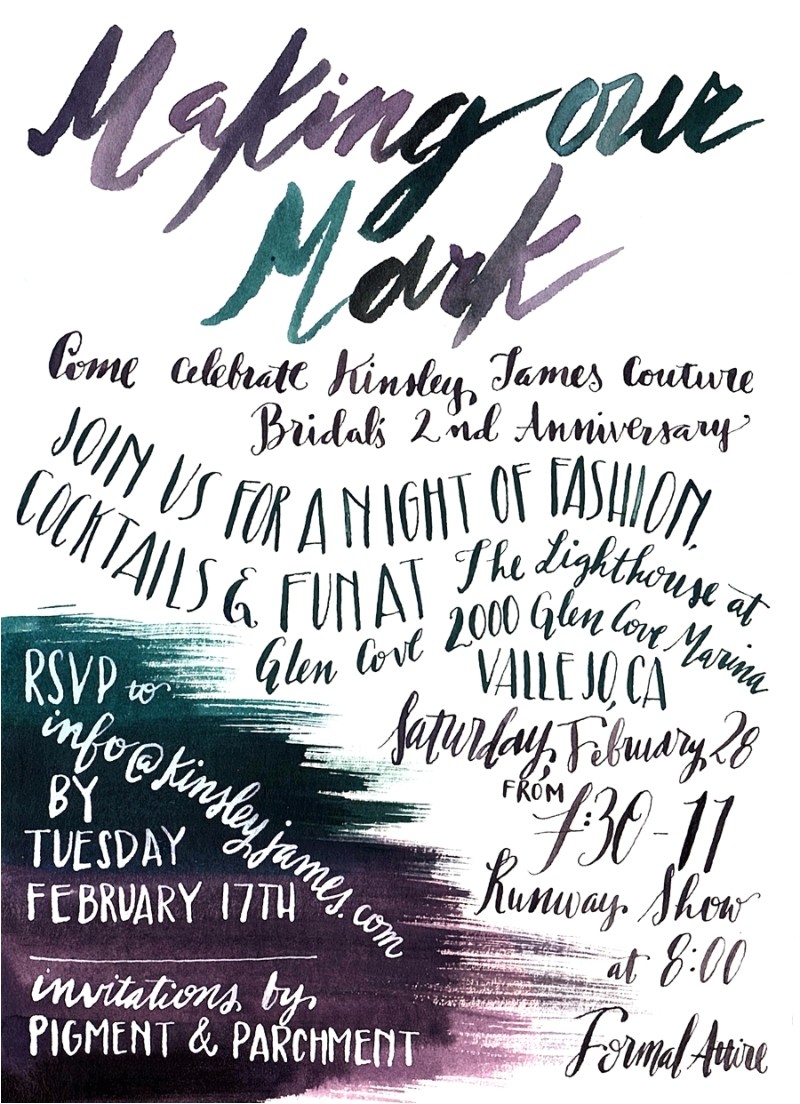 Making our
Mark
Come celebrate Kinsley James Couture
Bridal's 2nd Anniversary
JOIN US FOR A NIGHT OF FASHION,
COCKTAILS & FUN AT The Lighthouse at
Glen Cove 2000 Glen Cove Marina
VALLEJO, CA
Saturday, February 28
FROM
7:30-11
Runway Show
at 8:00
Formal Attire
RSVP to
info@kinsleyjames.com
BY
TUESDAY
FEBRUARY 17TH
invitations by
PIGMENT & PARCHMENT